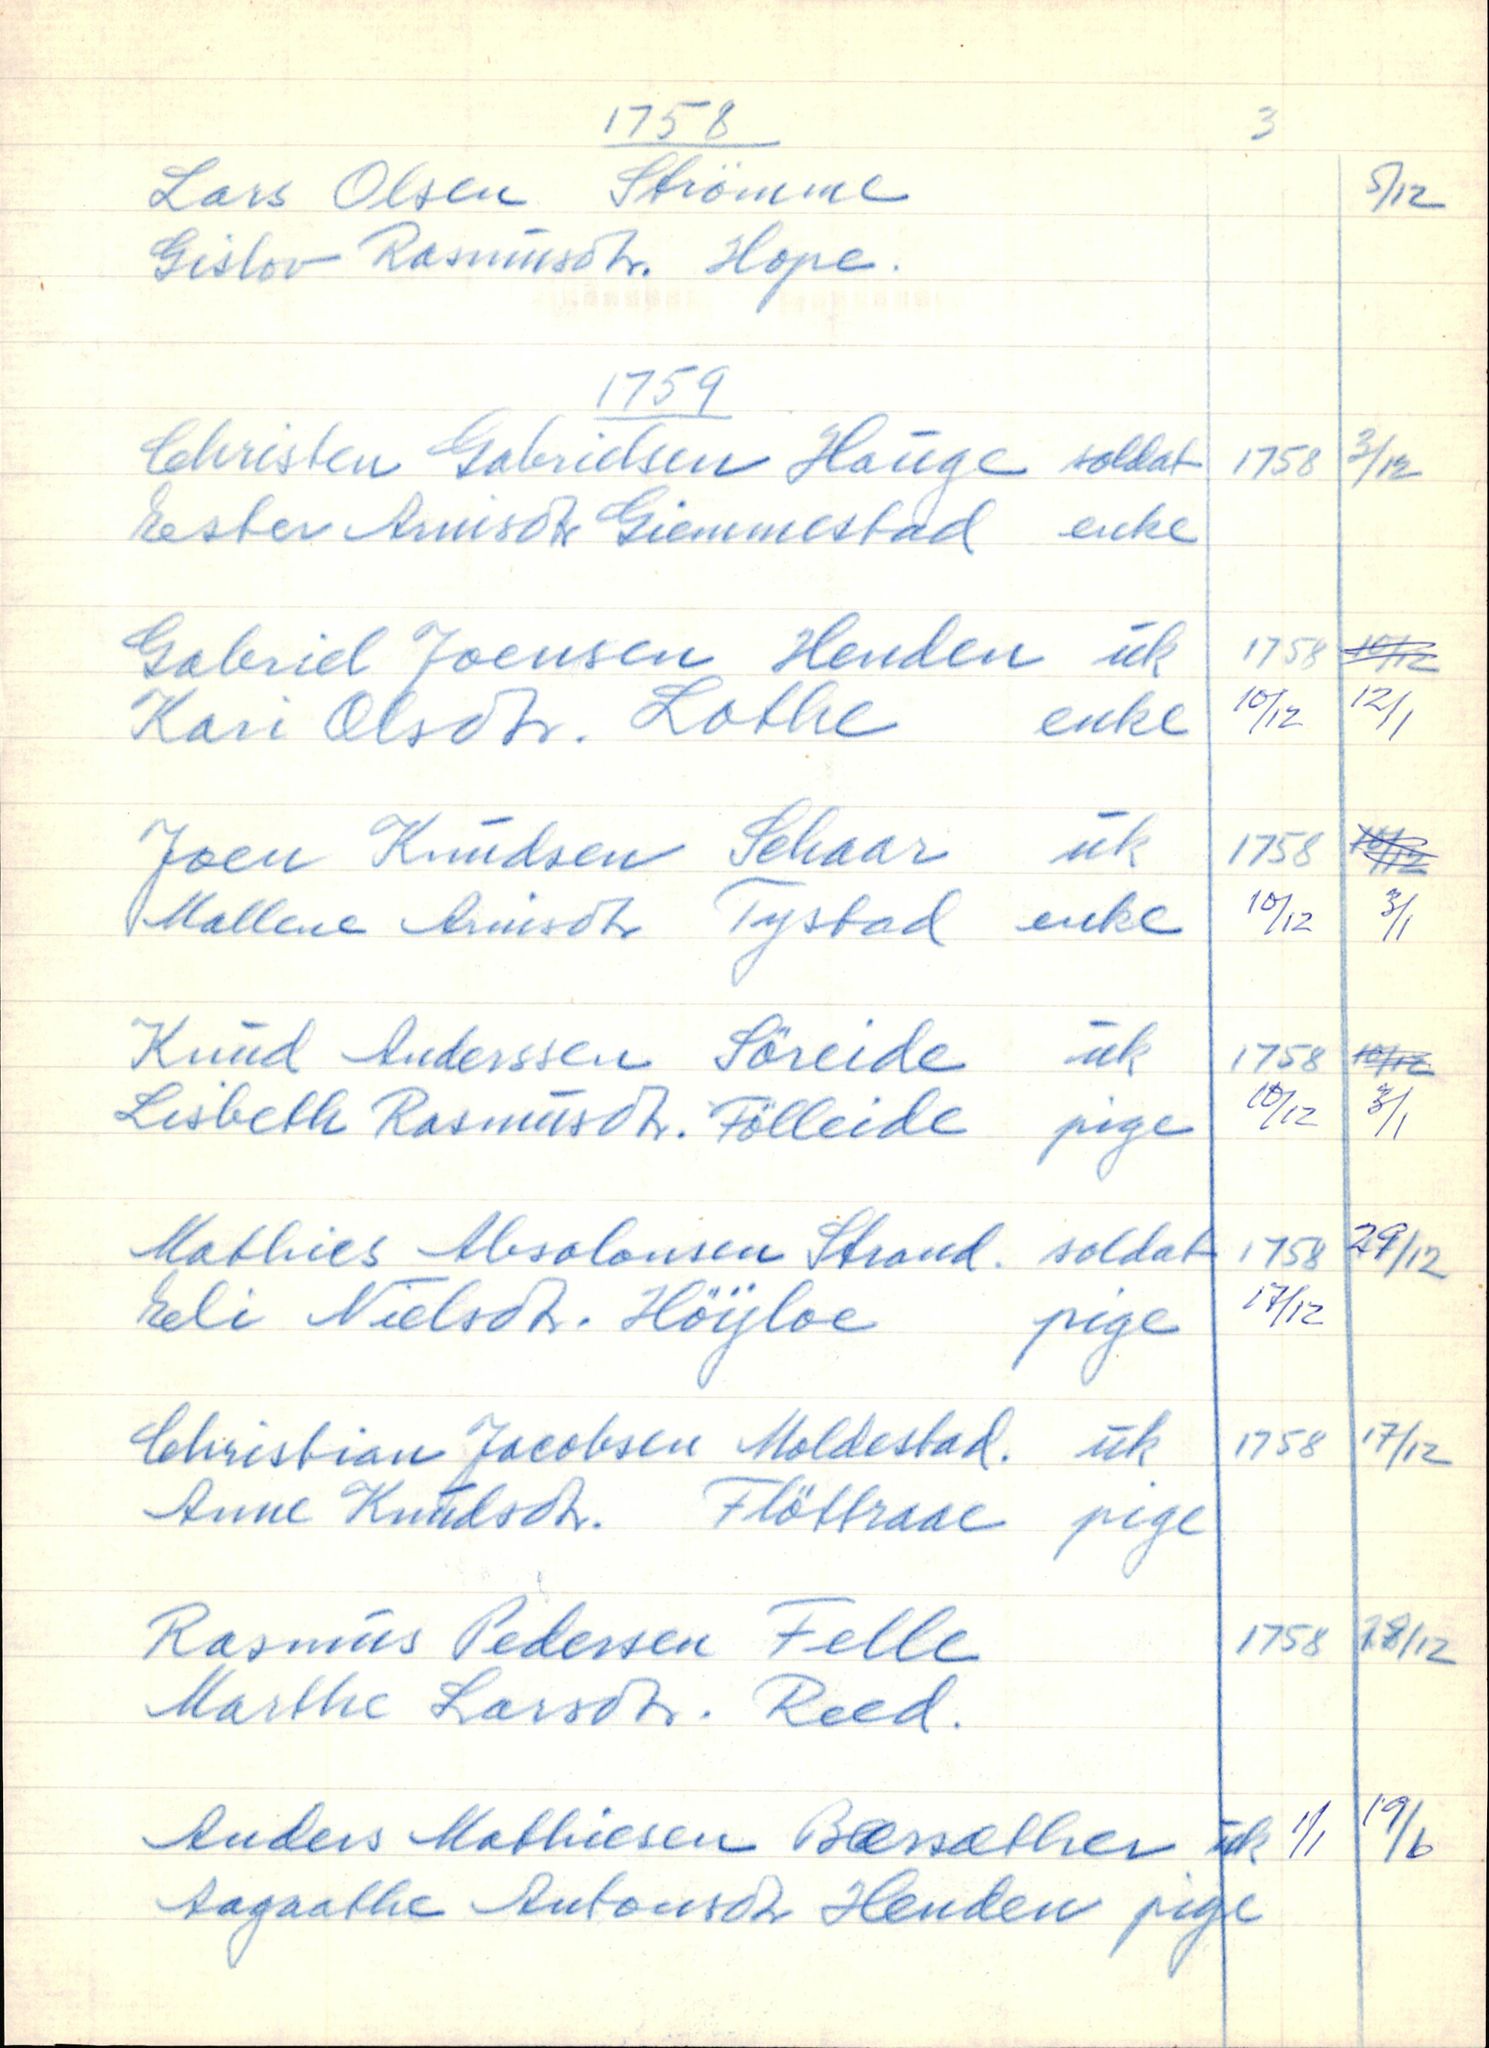 1758 3
Lars Olsen Strömme 5/12
Gislov Rasmusdtr. Hope.
1759
Christen Gabrielsen Hauge soldat 1758 3/12
Ester Arnisdtr Giemmestad enke
Gabriel Joensen Henden uk 1758 10/12
Kari Olsdtr. Lothe enke 10/12 12/1
Joen Knudsen Schaar uk 1758 10/12
Mallene Arnisdtr Tystad enke 10/12 3/1
Knud Anderssen Söreide uk 1758 10/12
Lisbeth Rasmusdtr. Fölleide pige 10/12 3/1
Mathies Absalonsen Strand. soldat 1758 29/12
Eli Nielsdtr. Höÿloe pige 17/12
Christian Jacobsen Moldestad. uk 1758 17/12
Anne Knudsdtr. Flöttraae pige
Rasmus Pedersen Felle 1758 28/12
Marthe Larsdtr. Reed.
Anders Mathiesen Bærsæther uk 1/1 19/6
Aagaathe Antonsdtr Henden pige